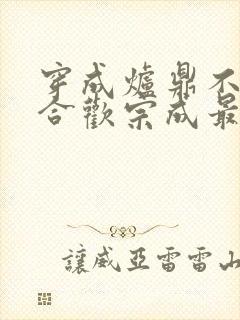 穿成爐鼎不
合歡宗成最
讓威亞雷雷山